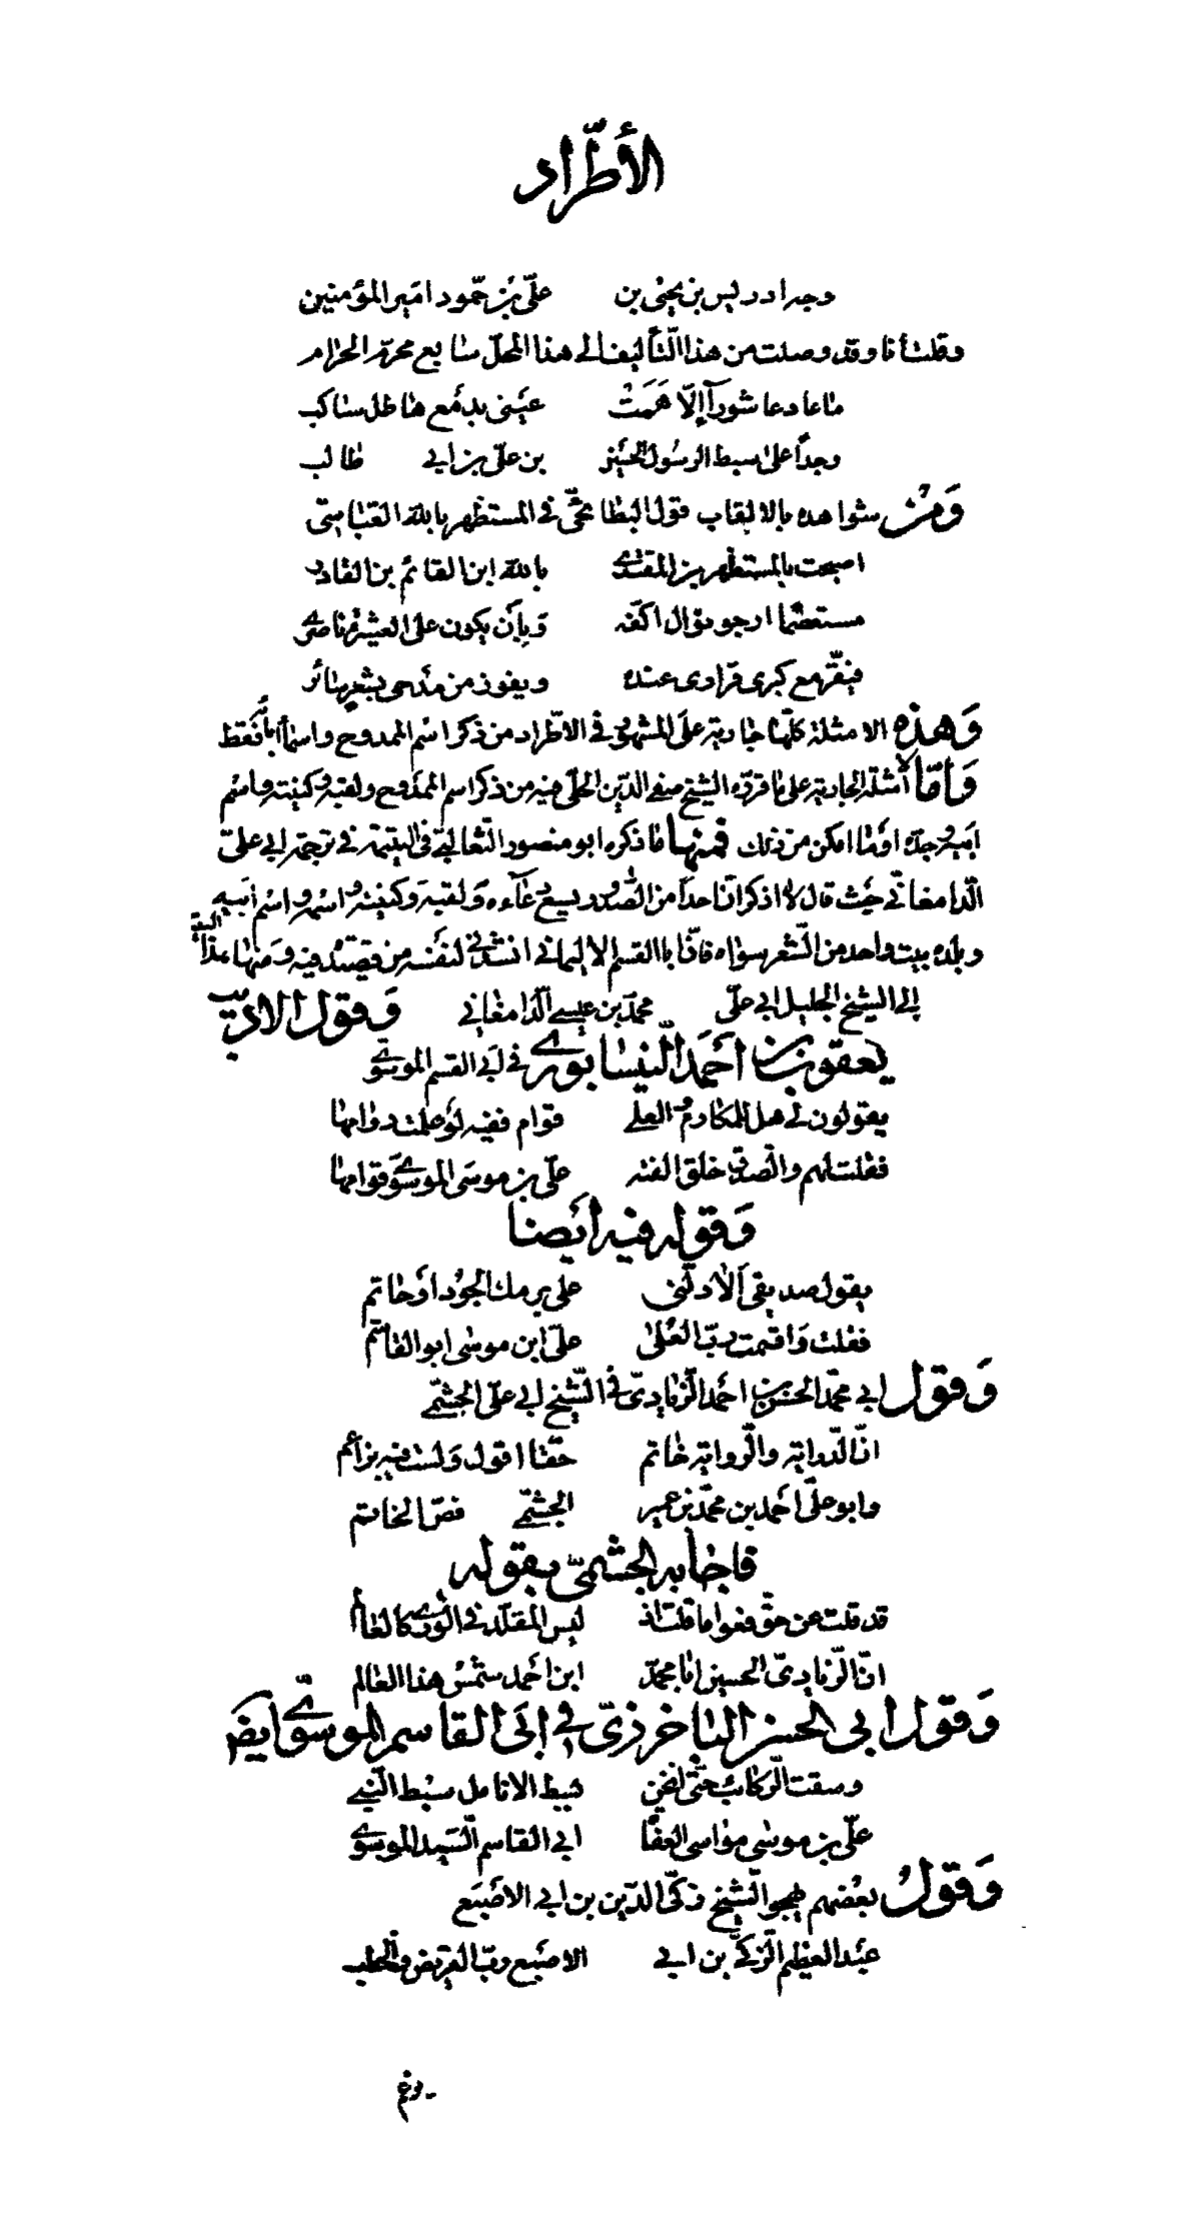 الأطّراد
وجه ادريس بن يحيٰى بن علىّ بن حمّود امير المؤمنين
وقلت أنا وقد وصلت من هذا التّأليف الى هذا المحلّ سابع محرّم الحرام
ما عاد عاشورآ إلّا هَمَتْ عيني بدمع هاطل ساكب
وجداً على سبط الرسُول الحسَين بن علىّ بن ابي طالب
وَمن شواهده بالالقاب قول البطائحىّ في المستظهر باللّه العبّاسىّ
اصبحت بالمستظهر بن المقتدي باللّه ابن القائم بن القادر
مستعصمًا ارجو نوال اكفّه وبأن يكون على العشيرة ناصري
فيقرّ مع كبرى قرارى عنده ويفوز من مدحى بشعر سائر
وَهذه الامثلة كلّها جارية على المشهور في الاطّراد من ذكر اسم الممدوح واسمأ آبائه فقط
وَأمّا الأمثلة الجارية على ما قرّره الشيخ صفى الدّين الحلّى فيه من ذكر اسم الممدوح ولقبه وكنيته واسْم
ابيه وجدّه او ما امكن من ذلك فمنها ما ذكره ابو منصور الثّعالبىّ فى اليتيمة في ترجمة ابي علىّ
الدّامغاني حيث قال لا اذكر انّ احداً من الصّدور يسع دعآءه وَلقبه وكنيته واسمه واسم ابيه
وبلده بيت واحد من الشّعر سواه فانّ ابا القسم الاليمانى انشدني لنفسه من قصيدة فيه وَمنها هذا البيت
إلى الشيخ الجليل ابي علىّ محمّد بن عيسى الدّامغاني وَقول الاديب
يعقوب بن أحمَد النّيسابوري في ابي القسم الموسَوي
يقولون لي هل للمكارم والعلى قوام ففيه لو علمت دوامها
فقلت لهم والصّدق خلق الفته علىّ بن موسَى الموسوي قوامها
وَقوله فيه أيضا
يقول صديقى ألا دلّنى على برمك الجُود او حاتم
فقلت وَاقسمت ربّ العُلىٰ علىّ ابن موسٰى ابو القاسم
وَقول ابي محمّد الحسن بن احمد الزياديّ في الشّيخ ابي علىّ الجشمّى
انّ الدّراية والرّواية خاتم حقّا اقول وَلست فيه بزاعم
وابو علىّ احمد بن محمّد بن عمير الجشمّى فصّ الخاتم
فاجابه الجشمىّ بقوله
قد قلت عن حقّ فغوا ما قلت اذ ليس المقلّد في الورى كالعالم
انّ الزّياديّ الحسين ابا محمّد ابن احمد شمسُ هذا العالم
وَقول ابي الحسن الباخرزىّ في إلى القاسم الموسوىّ ايض
وسقت الرّكائب حتّى انخن بسيط الانامل سبْط النّبي
علىّ بن موسٰى مواسى العفا ابي القاسم السّيد الموسوي
وَقولُ بعضهم يهجو الشّيخ زكىّ الدّين بن ابي الاصبَع
عبد العظيم الزّكىّ بن ابي الاصبَع ربّ القريض والخطب